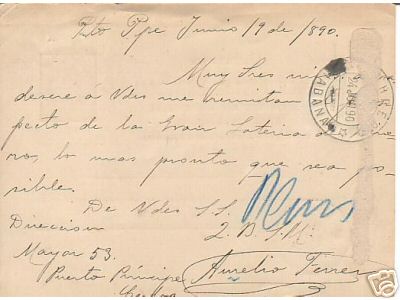 Pto Ppe Junio 19 de 1890.
Muy Sres mi
deseré á Vdes me remitan
pecto de la Gran Loteria de
ro, lo mas pronto que sea po-
sible.
De Vdes S. S.
Direccion
Mayor 53.
Puerto Principe
Aurelio Ferrer
HABANA